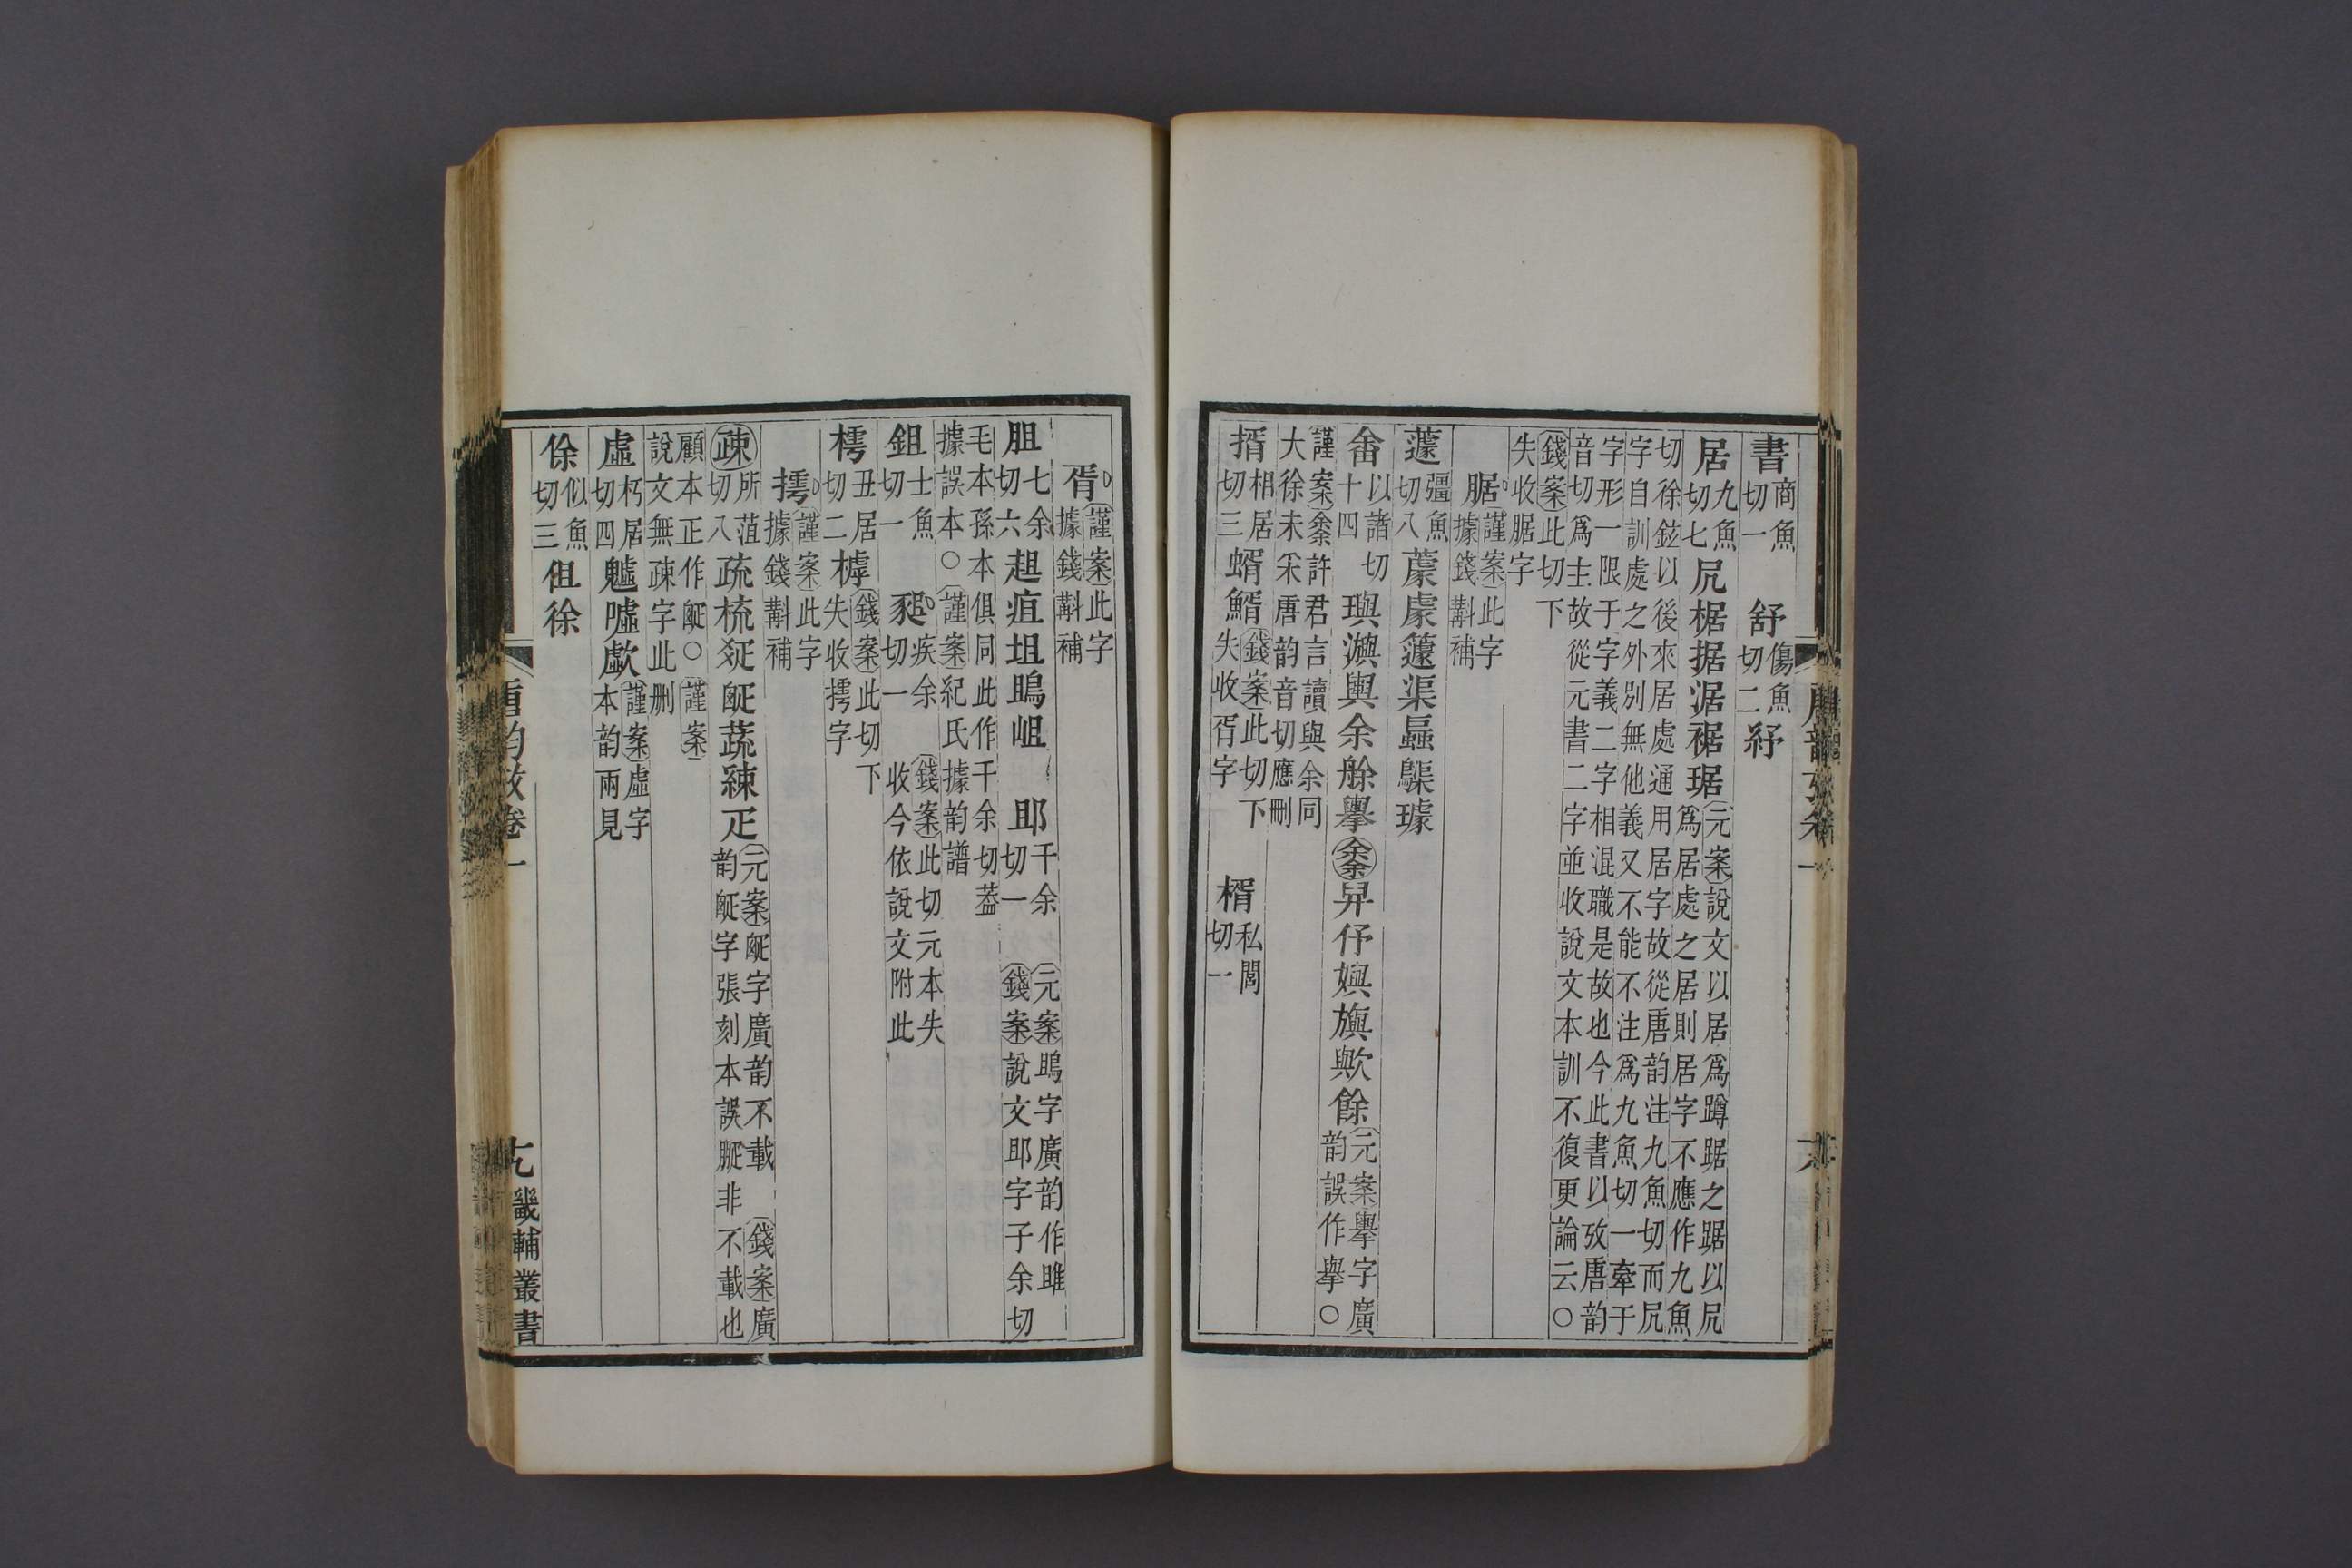 書商魚切一　舒傷魚切二紓
居九魚切七凥椐据涽裾琚元案說文以居爲蹲踞之踞以凥爲居處之居則居字不應作九魚
切徐鉉以後來居處通用居字故從唐韵注九魚切而凥字自訓處之外別無他義又不能不注爲九魚切一牽于
字形一限于字義二字相混職是故也今此書以攷唐韵音切爲主故從元書二字並收說文本訓不復更論云○
錢案此切下失收腒字
腒謹案此字據錢斠補
蘧彊魚切八蕖豦籧渠䝣鶏璩
畬以諸切十四　璵㵰輿余艅擧䍱舁伃嬩旟歟餘元案擧字廣韵誤作舉○
謹案䍱許君言讀與余同大徐未采唐韵音切應刪
揟相居切三蝑鱛錢案此切下失收胥字　楈私閭切一
胥謹案此字據錢斠補
胆七余切六趄疽坦鴡岨　耶千余切一　元案鴡字廣韵作雎錢案說文耶字子余切
毛本孫本俱同此作千余切葢據誤本○謹案紀氏據韵譜
鉏士魚切一　䝒疾余切一　錢案此切元本失收今依說文附此
樗丑居切二樗錢案此切下失收摴字
摴謹案此字據錢斠補
疎所菹切八疏梳㲀䟽蔬練疋元案䟽字廣韵不載　錢案廣韵䟽字張刻本誤䟽非不載也
顧本正作䟽○謹案說文無疎字此刪
虛朽居切四魖噓歔謹案虛字本韵兩見
徐似魚切三徂徐
唐韵攷卷一
十七畿輔叢書